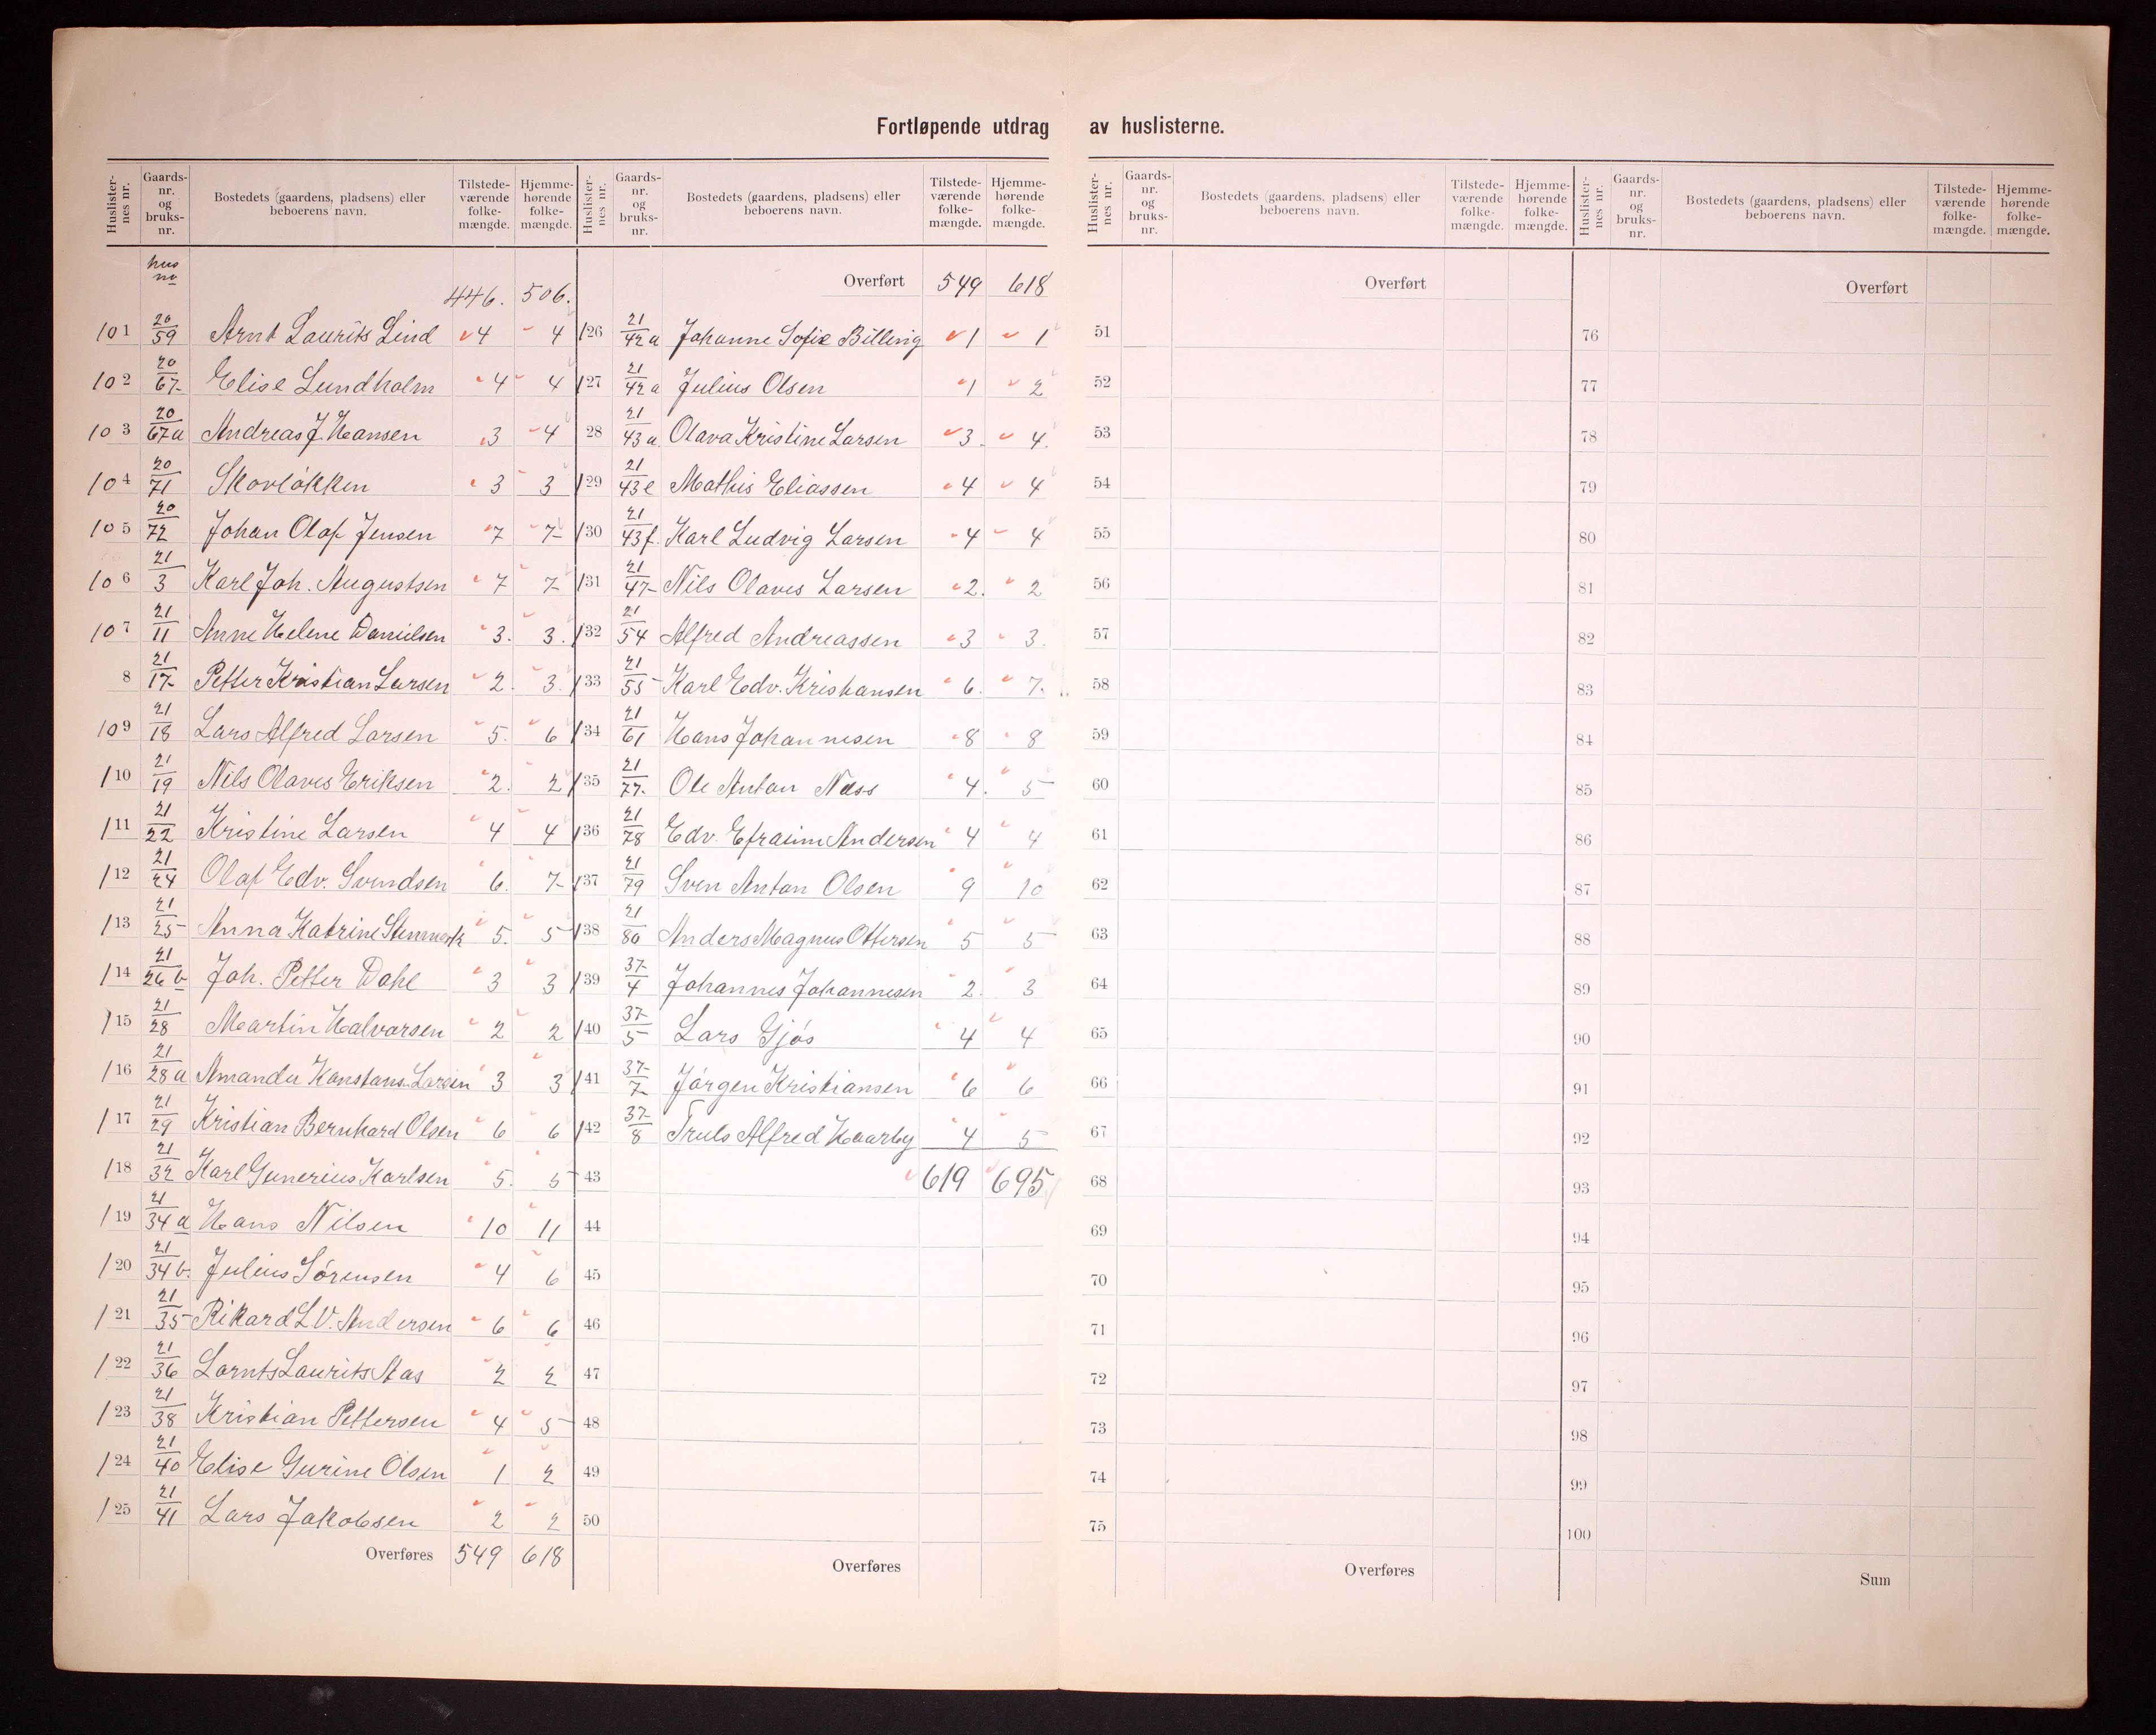 Fortløpende utdrag av huslisterne.
Huslister-nes nr. | Gaards-nr. og bruks-nr. | Bostedets (gaardens, pladsens) eller beboerens navn. | Tilstede-værende folke-mængde. | Hjemme-hørende folke-mængde.
hus nr
446. 506.
101 20/59 Arnt Laurits Lind 4 4
102 20/67 Elise Lundholm 4 4
103 20/67a Andreas J. Hansen 3 4
104 20/71 Skovløkken 3 3
105 20/72 Johan Olaf Jensen 7 7
106 21/3 Karl Joh. Augustsen 7 7
107 21/11 Anne Helene Danielsen 3. 3.
8 21/17 Petter Kristian Larsen 2. 3.
109 21/18 Lars Alfred Larsen 5. 6
110 21/19 Nils Olavus Eriksen 2. 2
111 21/22 Kristine Larsen 4 4
112 21/24 Olaf Edv. Svendsen 6. 7
113 21/25 Anna Katrine Stenmerk 5. 5
114 21/26b Joh. Petter Dahl 3 3
115 21/28 Martin Halvorsen 2 2
116 21/28a Amanda Konstans. Larsen 3 3
117 21/29 Kristian Bernhard Olsen 6 6
118 21/32 Karl Gunerius Karlsen 5. 5
119 21/34a Hans Nilsen 10 11
120 21/34b. Julius Sørensen 4 6
121 21/35 Rikard L. V. Andersen 6 6
122 21/36 Lornts Laurits Aas 2 2
123 21/38 Kristian Pettersen 4 5
124 21/40 Elise Gurine Olsen 1 2
125 21/41 Lars Jakobsen 2 2
Overføres 549 618
Huslister-nes nr. | Gaards-nr. og bruks-nr. | Bostedets (gaardens, pladsens) eller beboerens navn. | Tilstede-værende folke-mængde. | Hjemme-hørende folke-mængde.
Overført 549 618
126 21/42a Johanne Sofie Billing 1 1
127 21/42a Julius Olsen 1 2
28 21/43a. Olava Kristine Larsen 3. 4.
129 21/43e Mathis Eliassen 4 4
130 21/43f. Karl Ludvig Larsen 4 4
131 21/47 Nils Olavus Larsen 2. 2
132 21/54 Alfred Andreassen 3 3.
133 21/55 Karl Edv. Kristiansen 6. 7.
134 21/61 Hans Johannesen 8 8
135 21/77. Ole Anton Næss 4. 5
136 21/78 Edv. Efraim Andersen 4 4
137 21/79 Sven Anton Olsen 9 10
138 21/80 Anders Magnus Ottersen 5 5
139 37/4 Johannes Johannesen 2. 3
140 37/5 Lars Gjøs 4 4
141 37/7 Jørgen Kristiansen 6 6
142 37/8 Truls Alfred Haarby 4 5
43 619 695
44
45
46
47
48
49
50
Overføres
Huslister-nes nr. | Gaards-nr. og bruks-nr. | Bostedets (gaardens, pladsens) eller beboerens navn. | Tilstede-værende folke-mængde. | Hjemme-hørende folke-mængde.
Overført
51
52
53
54
55
56
57
58
59
60
61
62
63
64
65
66
67
68
69
70
71
72
73
74
75
Overføres
Huslister-nes nr. | Gaards-nr. og bruks-nr. | Bostedets (gaardens, pladsens) eller beboerens navn. | Tilstede-værende folke-mængde. | Hjemme-hørende folke-mængde.
Overført
76
77
78
79
80
81
82
83
84
85
86
87
88
89
90
91
92
93
94
95
96
97
98
99
100
Sum